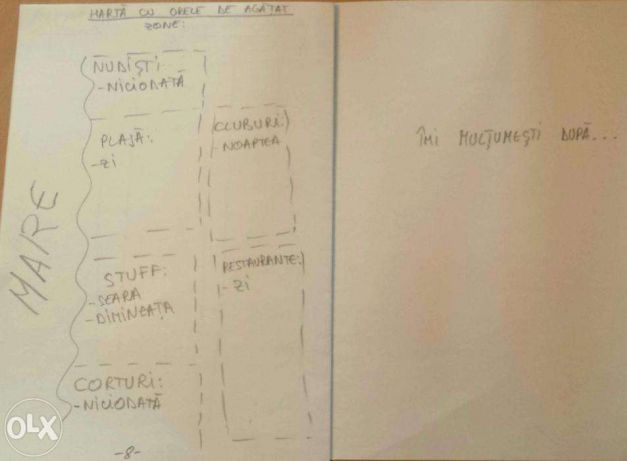 HARTĂ CU ORELE DE AGĂȚAT
ZONE:
MARE
NUDIȘTI:
-NICIODATĂ
PLAJĂ:
-ZI
CLUBURI:
- NOAPTEA
STUFF:
-SEARA
-DIMINEAȚA
RESTAURANTE:
- ZI
CORTURI:
-NICIODATĂ
-8-
ÎMI MULȚUMEȘTI DUPĂ...
OLX